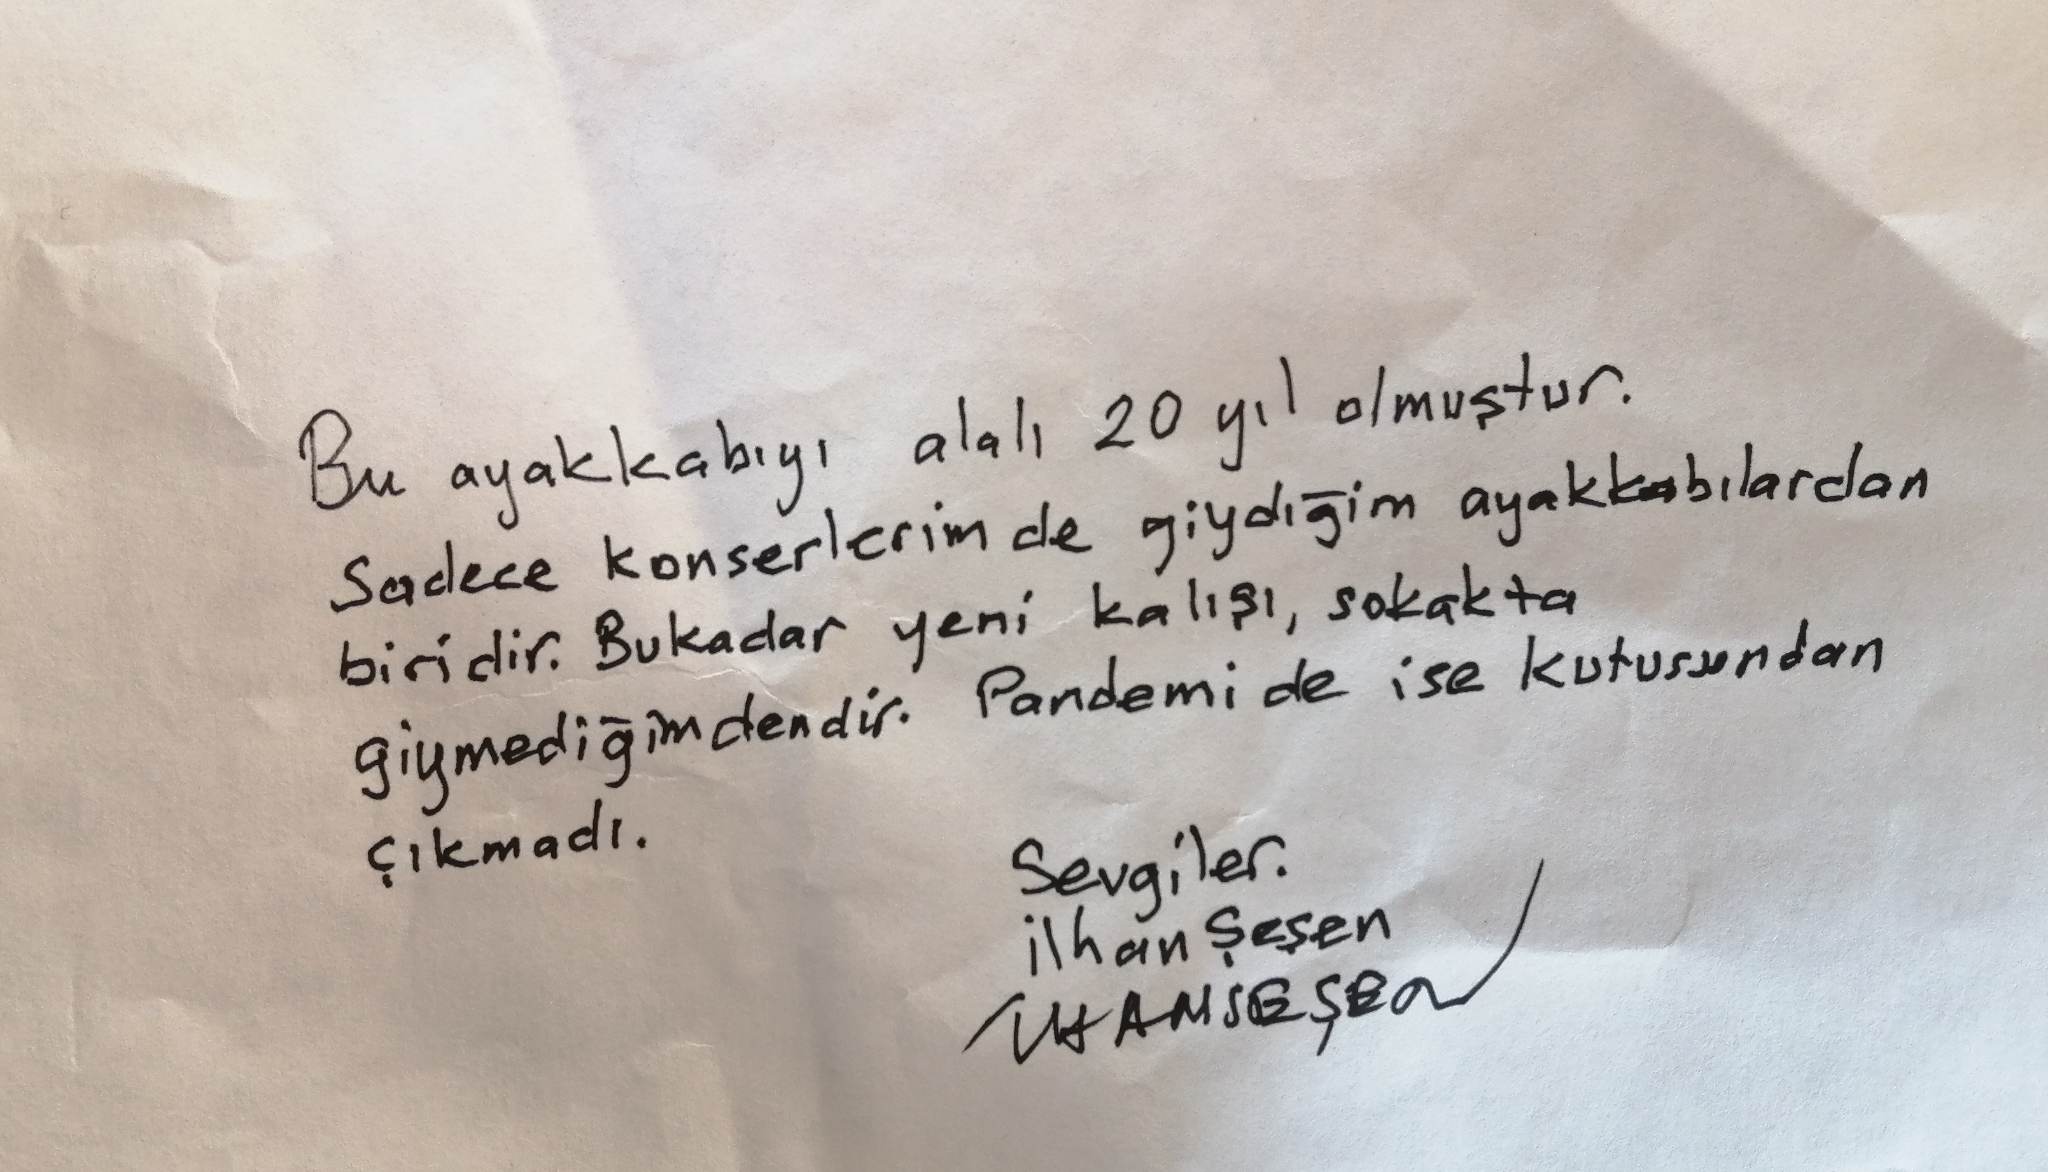 Bu ayakkabıyı alalı 20 yıl olmuştur.
Sadece konserlerimde giydiğim ayakkabılardan
biridir. Bukadar yeni kalışı, sokakta
giymediğimdendir. Pandemide ise kutusundan
çıkmadı.
Sevgiler.
ilhan Şeşen
İLHANŞEŞEN